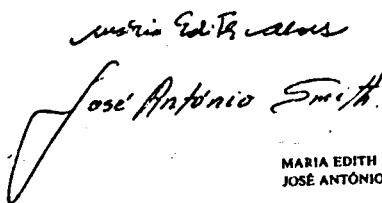 Maria Edith Alves
José António Smith.
MARIA EDITH
JOSÉ ANTÓNIO